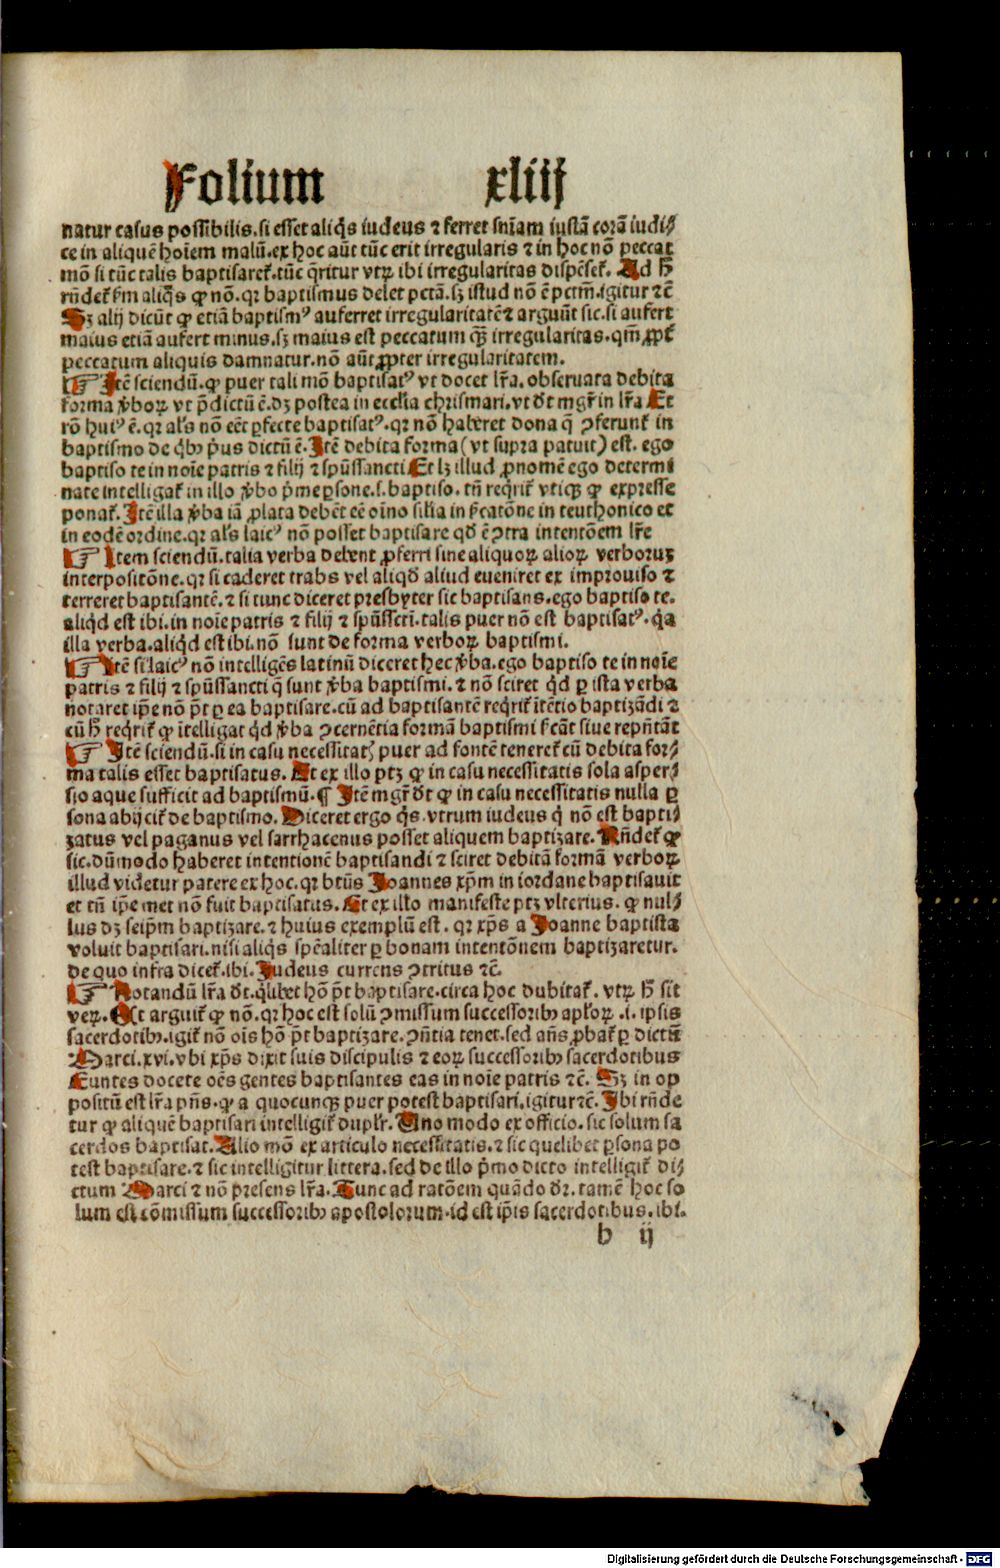 Folium xliij
natur casus possibilis.si esset aliq̄s iudeus ⁊ ferret sn̄iam iustā corā iudi⸗
ce in aliquē hoīem malū.ex hoc aūt tūc erit irregularis ⁊ in hoc nō peccat
mō si tūc talis baptisaretꝭ.tūc q̄ritur vtꝝ ibi irregularitas dispēsetꝭ. Ad ħ
rn̄detꝭ ẜm aliq̄s ꝙ nō.qꝛ baptismus delet pctā.sꝫ istud nō ē pctm̄.igitur ⁊c̄
Sꝫ alij dicūt ꝙ etiā baptismꝰ auferret irregularitatē⁊ arguūt sic.si aufert
maius etiā aufert minus.sꝫ maius est peccatum qꝫ̄ irregularitas.qm̄ ꝓpt̄
peccatum aliquis damnatur.nō aūt ꝓpter irregularitatem.
☞ Itē sciendū.ꝙ puer tali mō baptisatꝰ vt docet lr̄a. obseruata debita
forma v̄boꝝ vt p̄dictū ē.dꝫ postea in ecclīa chrismari.vt d̄t mgr̄ in lr̄a Et
rō huiꝰ ē.qꝛ al̄s nō eēt ꝑfecte baptisatꝰ.qꝛ nō haberet dona q̄ ꝯferunt̄ in
baptismo de q̄bꝰ p̄us dictū ē.Itē debita forma(vt supra patuit) est. ego
baptiso te in noīe patris ⁊ filij ⁊ spūssancti Et lꝫ illud ꝓnomē ego determi
nate intelligatꝭ in illo v̄bo p̄me ꝑsone.s. baptiso. tn̄ req̄ritꝭ vtiqꝫ ꝙ expresse
ponatꝭ. Itē illa v̄ba iā ꝓlata debēt eē oīno sil̄ia in ẜcatōne in teuthonico et
in eodē ordine.qꝛ al̄s laicꝰ nō posset baptisare qd̄ ē ꝯtra intentōem lr̄e
☞ Item sciendū.talia verba debent ꝓferri sine aliquoꝝ alioꝝ verborum
interpositōne.qꝛ si caderet trabs vel aliqd̄ aliud eueniret ex improuiso ⁊
terreret baptisantē.⁊ si tunc diceret presbyter sic baptisans.ego baptiso te.
aliqd̄ est ibi.in noīe patris ⁊ filij ⁊ spūsscti.talis puer nō est baptisatꝰ.q̄a
illa verba.aliqd̄ est ibi.nō sunt de forma verboꝝ baptismi.
☞ Itē si laicꝰ nō intelligēs latinū diceret hec v̄ba.ego baptiso te in noīe
patris ⁊ filij ⁊ spūssancti q̄ sunt v̄ba baptismi.⁊ nō sciret qd̄ ꝑ ista verba
notaret ip̄e nō p̄t ꝑ ea baptisare.cū ad baptisantē req̄ritꝭ ītētio baptizādi ⁊
cū ħ req̄ritꝭ ꝙ ītelligat qd̄ v̄ba ꝯcernētia formā baptismi ẜcāt siue repn̄tāt
☞ Itē sciendū.si in casu necessitatꝭ puer ad fontē teneretꝭ cū debita for⸗
ma talis esset baptisatus. Et ex illo ptꝫ ꝙ in casu necessitatis sola asper⸗
sio aque sufficit ad baptismū.¶ Itē mgr̄ d̄t ꝙ in casu necessitatis nulla ꝑ
sona abijcitꝭ de baptismo. Diceret ergo q̄s.vtrum iudeus q̄ nō est bapti⸗
zatus vel paganus vel sarrhacenus posset aliquem baptizare. Rn̄detꝭ ꝙ
sic.dūmodo haberet intentionē baptisandi ⁊ sciret debitā formā verboꝝ
illud videtur patere ex hoc.qꝛ btūs Joannes xp̄m in iordane baptisauit
et tn̄ ip̄e met nō fuit baptisatus. Et ex illo manifeste ptꝫ vlterius. ꝙ nul⸗
lus dꝫ seip̄m baptizare.⁊ huius exemplū est. qꝛ xp̄s a Joanne baptista
voluit baptisari.nisi aliq̄s spēaliter ꝑ bonam intentōnem baptizaretur.
de quo infra dicetꝭ.ibi. Judeus currens ꝯtritus ⁊c̄.
☞ Notandū lr̄a d̄t.q̄libet hō p̄t baptisare.circa hoc dubitatꝭ. vtꝝ ħ sit
veꝝ. Et arguitꝭ ꝙ nō.qꝛ hoc est solū ꝯmissum successoribꝰ apl̄oꝝ .i. ipsis
sacerdotibꝰ.igitꝭ nō oīs hō p̄t baptizare.ꝯn̄tia tenet.sed an̄s ꝓbatꝭ ꝑ dictū
Marci.xvi.vbi xp̄s dixit suis discipulis ⁊ eoꝝ successoribꝰ sacerdotibus
Euntes docete oēs gentes baptisantes eas in noīe patris ⁊c̄. Sꝫ in op
positū est lr̄a pn̄s.ꝙ a quocunqꝫ puer potest baptisari.igitur⁊c̄. Ibi rn̄de
tur ꝙ aliquē baptisari intelligitꝭ dupl̄r. Uno modo ex officio. sic solum sa
cerdos baptisat.Alio mō ex articulo necessitatis.⁊ sic quelibet ꝑsona po
test baptisare.⁊ sic intelligitur littera.sed de illo p̄mo dicto intelligitꝭ di⸗
ctum Marci ⁊ nō presens lr̄a.Tunc ad ratōem quādo d̄r.tamē hoc so
lum est cōmissum successoribꝰ apostolorum.id est ip̄is sacerdotibus.ibi.
b ij
Digitalisierung gefördert durch die Deutsche Forschungsgemeinschaft - DFG